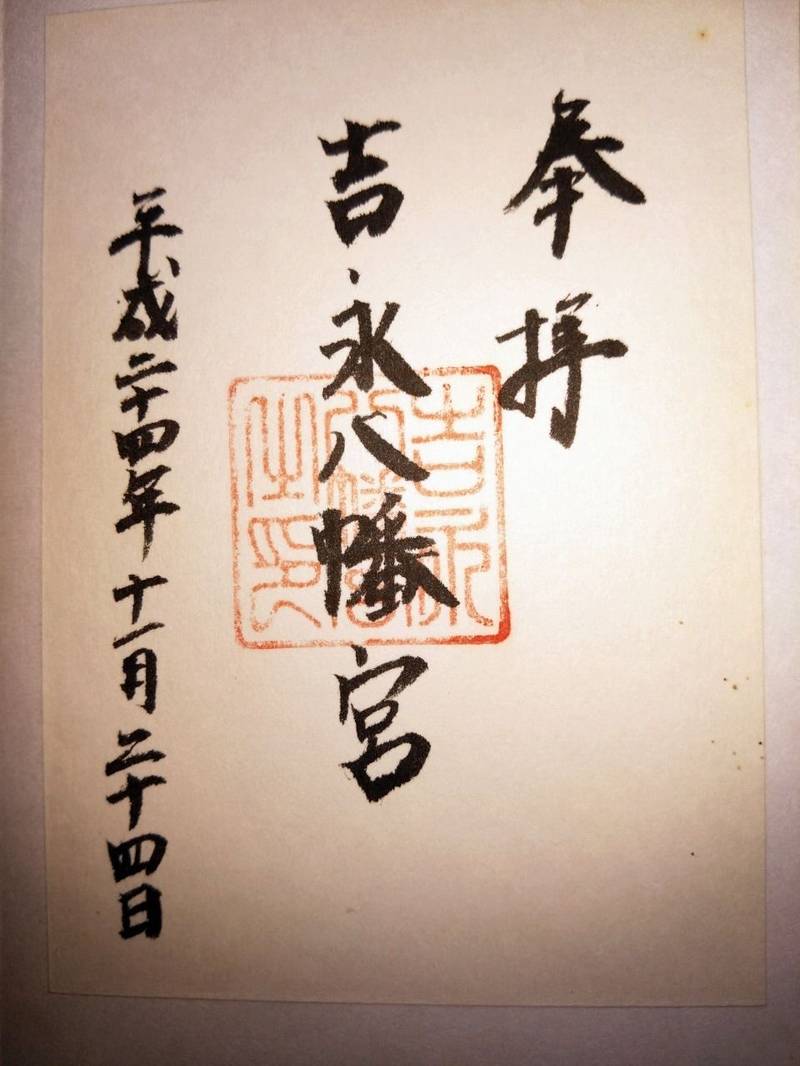 奉拝
吉永八幡宮
吉永八幡宮之印
平成二十四年十一月二十四日